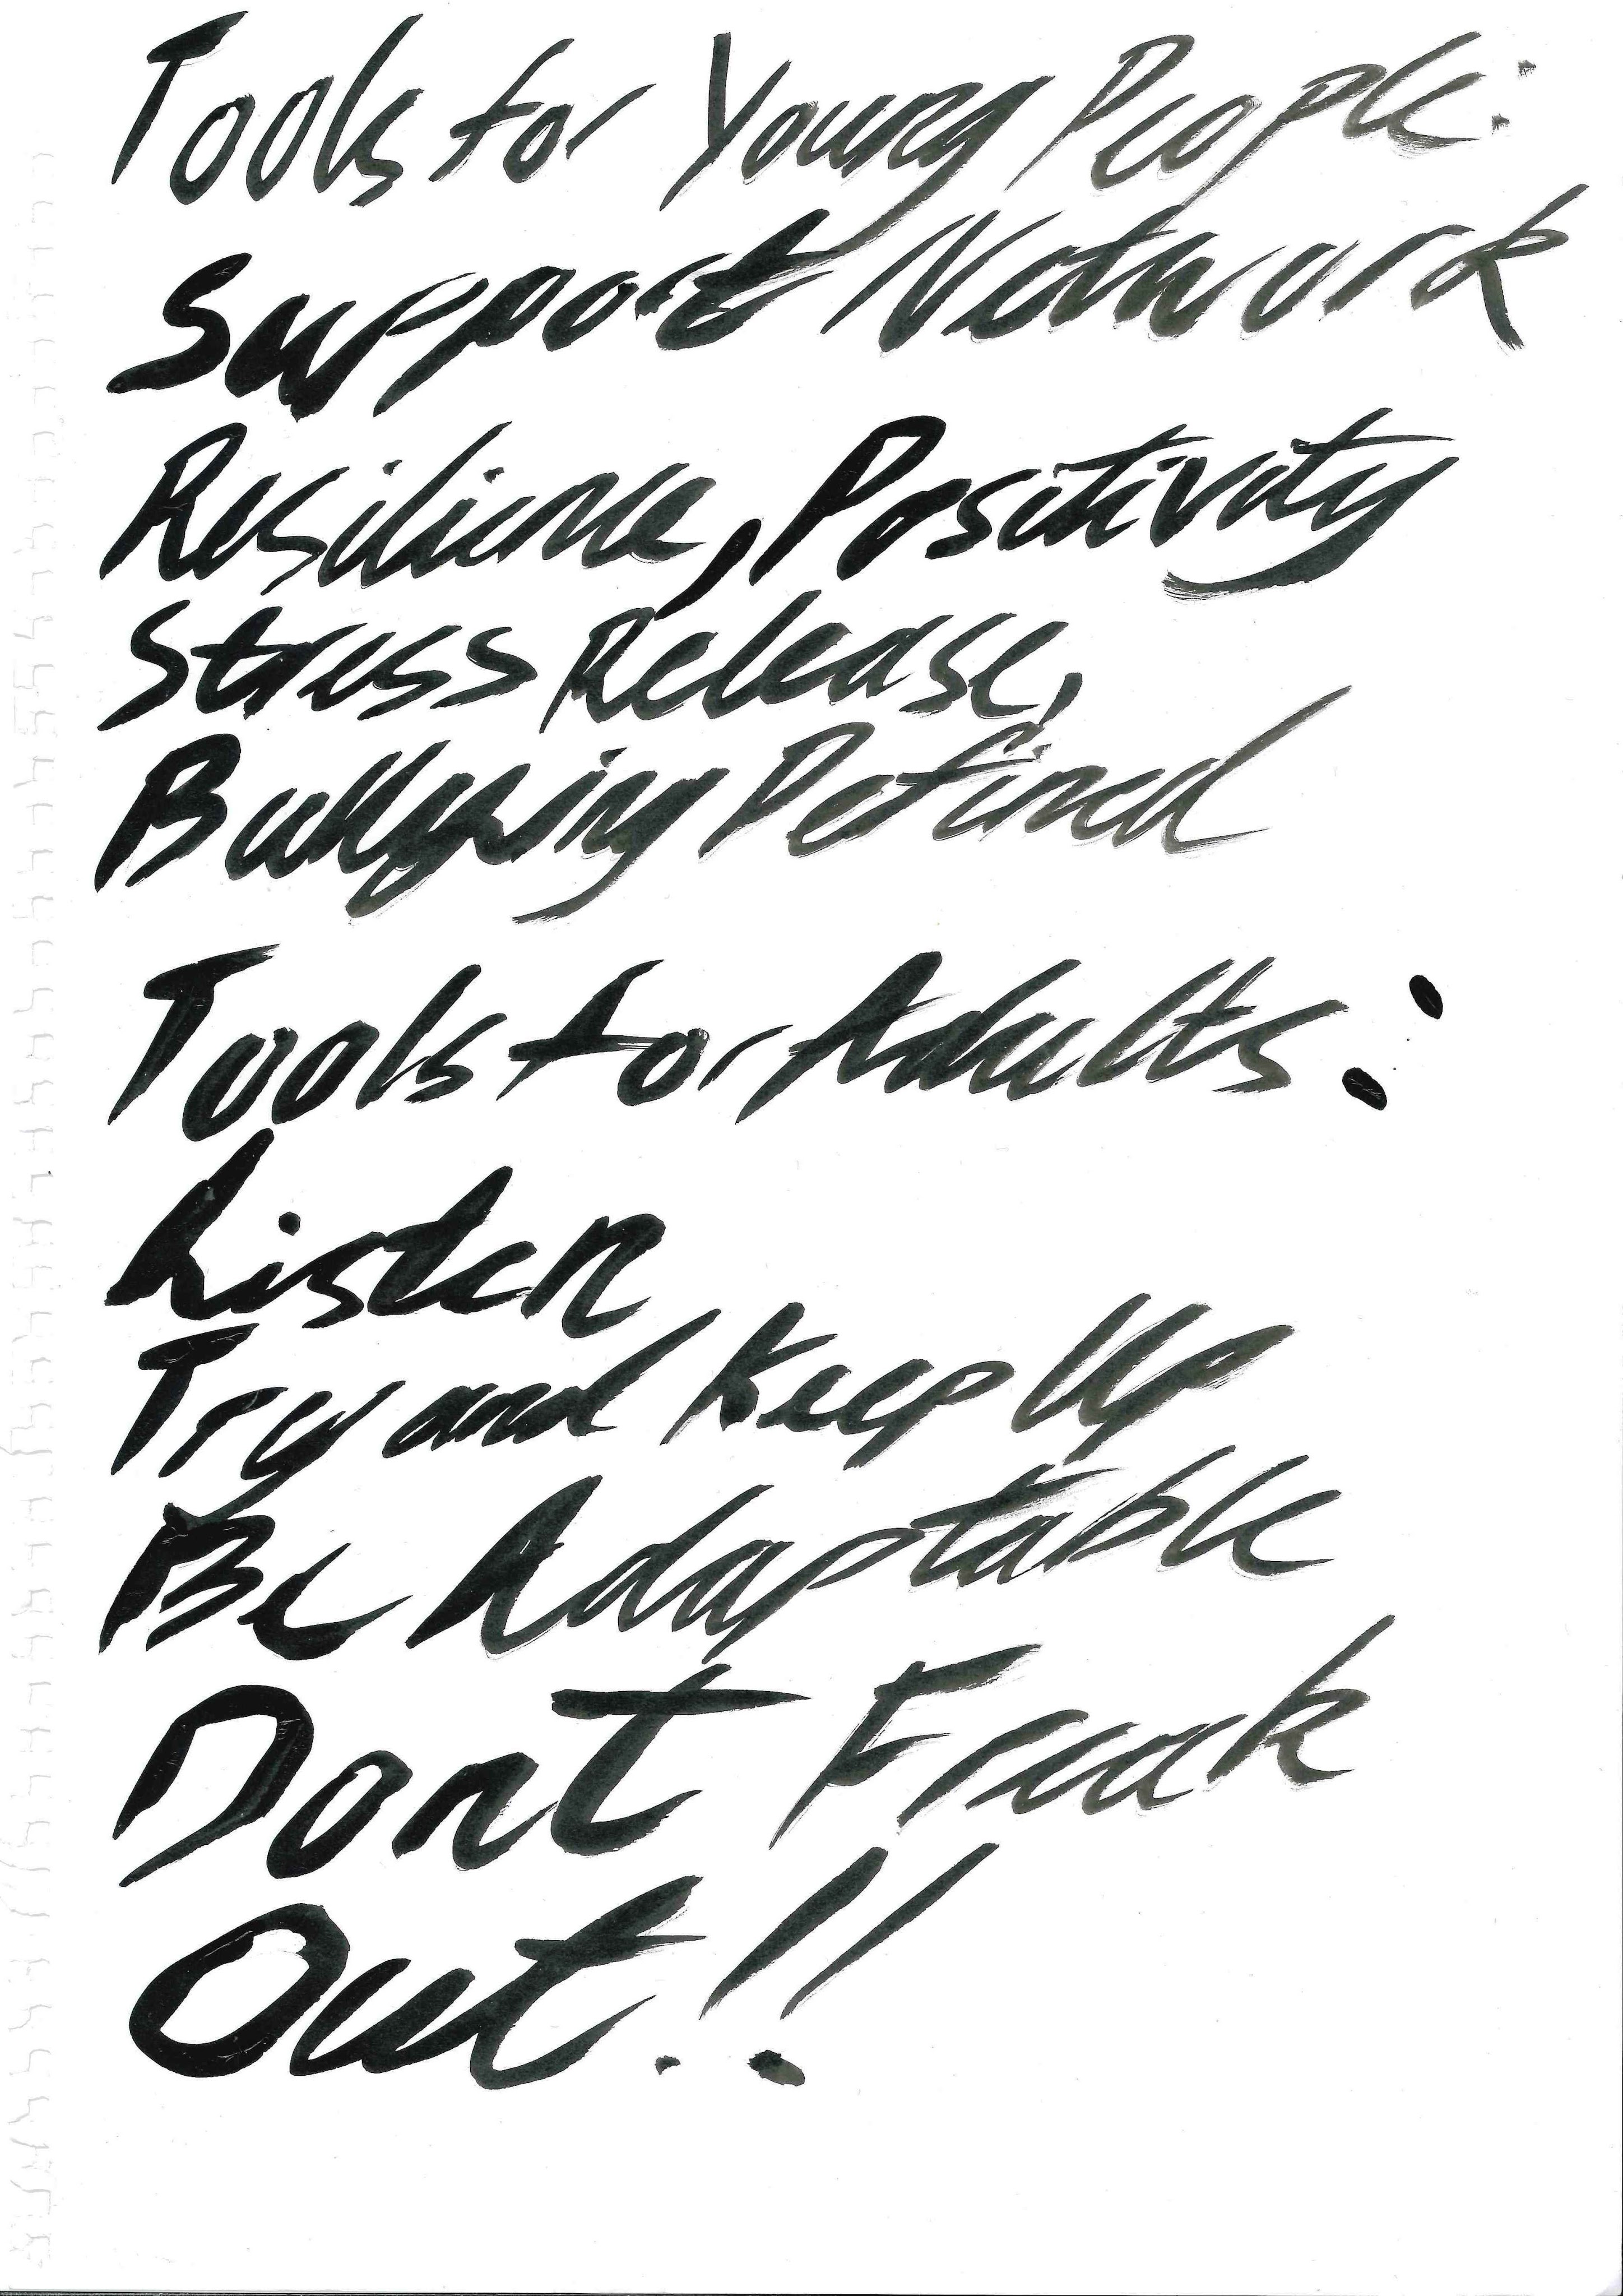 Tools for Young People:
Support Network
Resilience, Positivity
Stress Release,
Bullying Defined
Tools for Adults:
Listen
Try and Keep Up
Be Adaptable
Dont Freak
Out!!